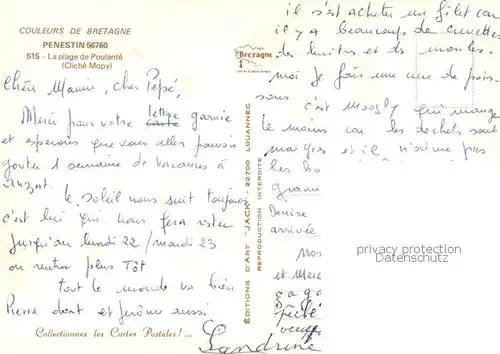 COULEURS DE BRETAGNE
PENESTIN 56760
515 - La plage de Poulanté
(Cliché Mopy)
Chère Mamie, cher Pépé,
lettre
Merci pour votre carte garnie
et espérons que vous allez pouvoir
gouter 1 semaine de vacances à
le soleil nous suit toujours
c'est lui qui nous fera rester
jusqu'au lundi 22 / mardi 23
ou rentrer plus tôt
tout le monde va bien
Pierre dort et Jérôme aussi
Collectionnez les Cartes Postales!...
Sandrine
Bretagne
EDITIONS D'ART "JACK" - 22700 LOUANNEC
REPRODUCTION INTERDITE
il s'est acheter un filet car
il y a beaucoup de crevettes
des huitres et des moules.
moi je fais une cure de pois-
sons c'est qui mange
le moins car les déchets sont
maigres et il n'aime pas
les
Denise
arrivée
Nos
et Merc
gaga
pêche
privacy protection